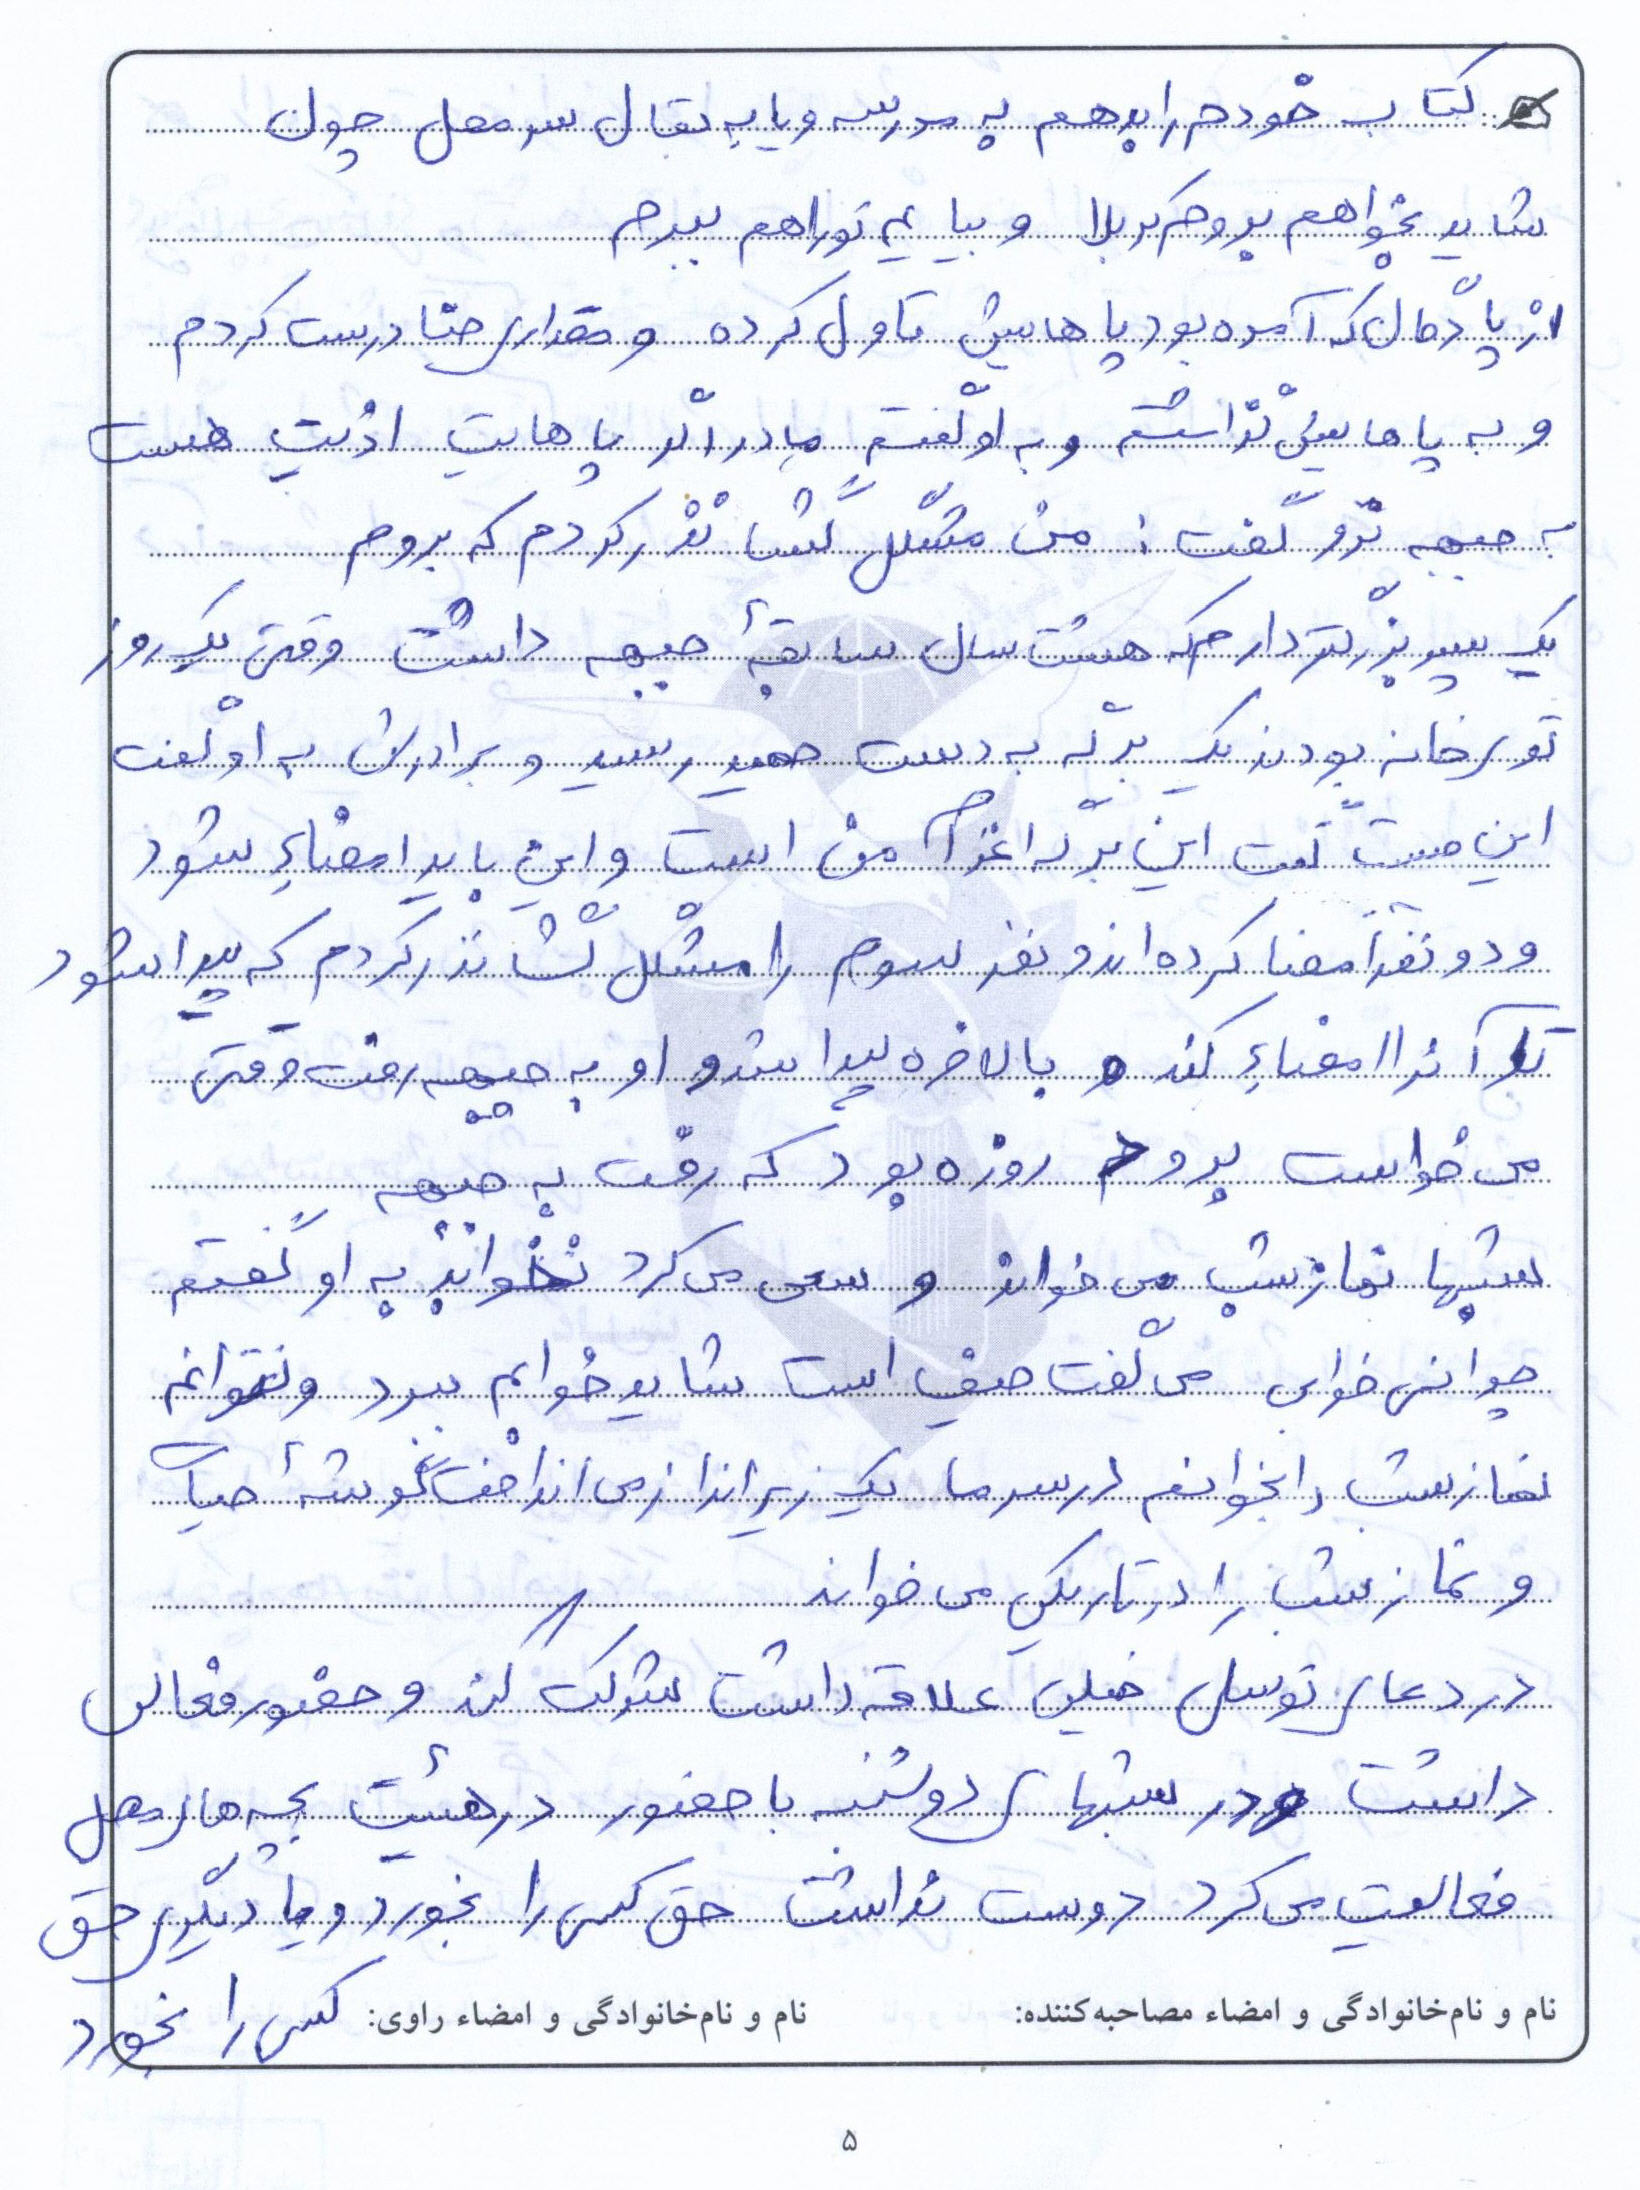 کتاب خودم را بدهم به مدرسه و یا به بقال سر محل چون
شاید بخواهم بروم کربلا و بیایم تو را هم ببرم
از پادگان که آمده بود پاهایش تاول کرده و مقداری حنا درست کردم
و به پاهایش گذاشتم و به او گفتم مادر اگر پاهایت اذیت هست
به جبهه نرو گفت: من مشکل گشا نذر کردم که بروم
یک پسر بزرگتر دارم که هشت سال سابقهٔ جبهه داشت وقتی یک روز
توی خانه بودند یک برگه به دست حمید رسید و برادرش به او گفت
این چیست گفت این برگه اعزام من است و این باید امضاء شود
و دو نفر امضا کرده‌اند و نفر سوم را مشکل گشا نذر کردم که پیدا شود
تا آنرا امضاء کند و بالاخره پیدا شد و او به جبهه رفت وقتی
می‌خواست برود روزه بود که رفت به جبهه
شبها نماز شب می‌خواند و سعی می‌کرد نخوابد به او گفتم
چرا نمی‌خوابی می‌گفت حیف است شاید خوابم ببرد و نتوانم
نماز شب را بخوانم در سرما یک زیرانداز می‌انداخت گوشهٔ حیاط
و نماز شب را در تاریکی می‌خواند
در دعای توسل خیلی علاقه داشت شرکت کند و حضور فعالی
داشت و در شبهای دوشنبه با حضور در هیئت بچه‌های محل
فعالیت می‌کرد دوست نداشت حق کسی را بخورد و یا دیگری حق
کسی را بخورد
نام و نام‌خانوادگی و امضاء مصاحبه‌کننده: نام و نام‌خانوادگی و امضاء راوی:
۵